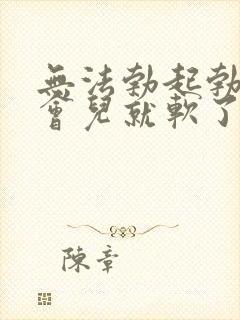 無法勃起勃
會兒就軟了
陳章